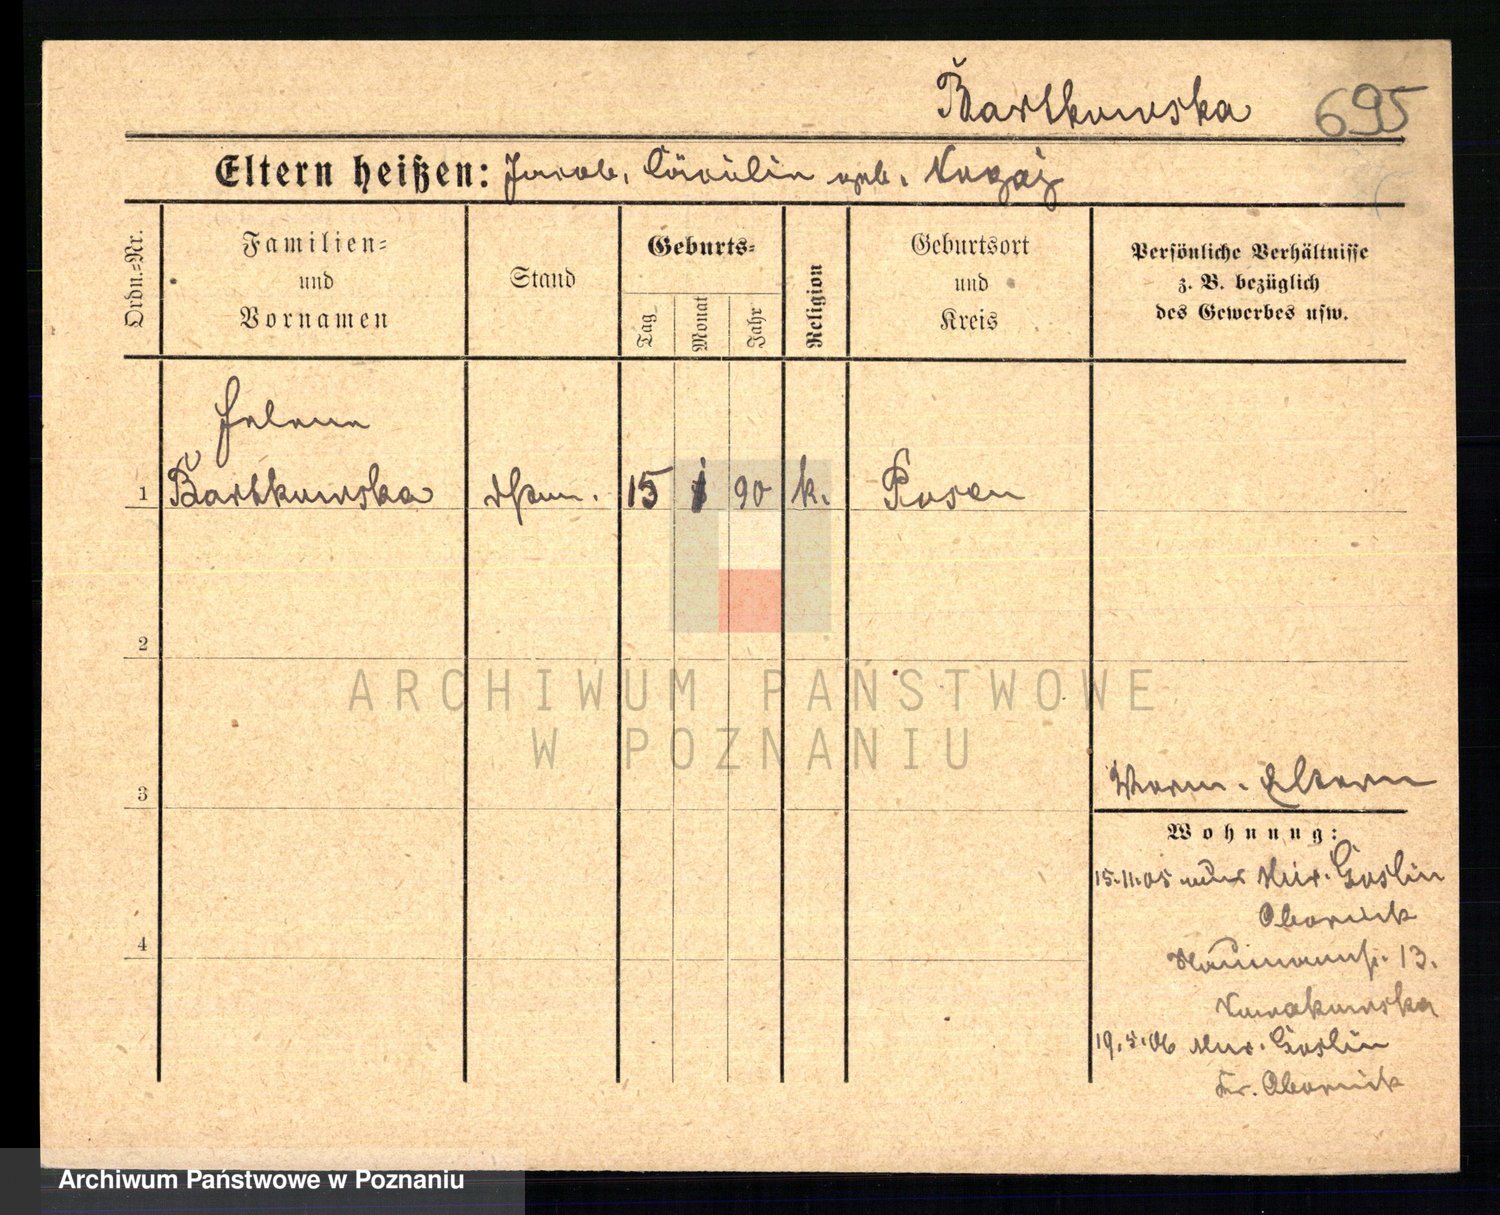 Bartkowska 695
Eltern heißen: Jacob, Cäcilie geb. Nogaj
Ordn.=Nr.
Familien=
und
Vornamen
Stand
Geburts=
Tag
Monat
Jahr
Religion
Geburtsort
und
Kreis
Persönliche Verhältnisse
z. B. bezüglich
des Gewerbes usw.
Helene
1 Bartkowska 15 1 90 k. Posen
2
3
4
Eltern
Wohnung:
15.11.05 Mur. Goslin
Obornick
Naumannstr. 13.
Nowakowska
19.5.06 Mur. Goslin
Kr. Obornick
ARCHIWUM PAŃSTWOWE
W POZNANIU
Archiwum Państwowe w Poznaniu